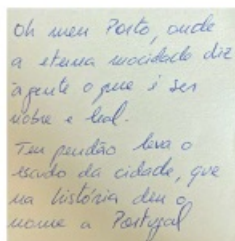 Oh meu Porto, onde
a eterna mocidade diz
à gente o que é ser
nobre e leal.
Teu pendão leva o
escudo da cidade, que
na história deu o
nome a Portugal